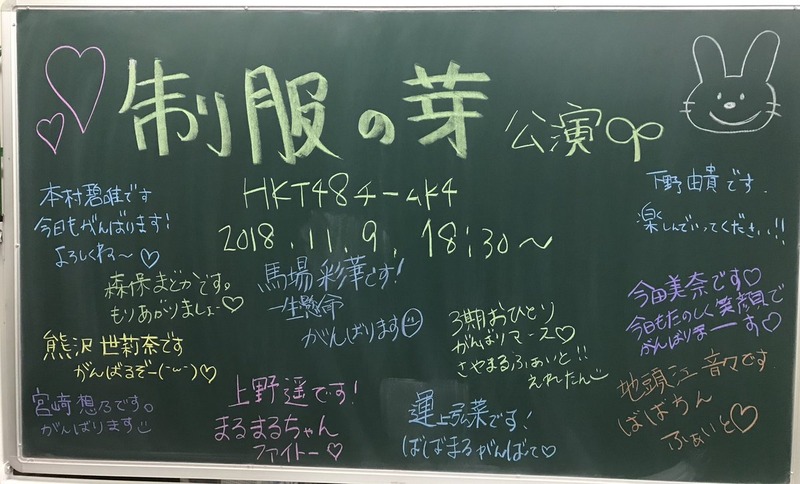 制服の芽 公演
HKT48チームK4
2018.11.9. 18:30〜
本村碧唯です
今日もがんばります!
よろしくね〜♡
下野由貴です.
楽しんでいってください!!
森保まどかです。
もりあがりましょー♡
馬場彩華です!
一生懸命
がんばります☺
3期おひとり
がんばりマース♡
さやまるふぁいと!!
えれたん
今田美奈です♡
今日もたのしく笑顔で
がんばりまーーす♡
熊沢世莉奈です
がんばるぞー(˘⌣˘)♡
宮﨑想乃です。
がんばります
上野遥です!
まるまるちゃん
ファイトー♡
運上弘菜です!
ばばまるがんばて♡
地頭江音々です
ばばちん
ふぁいと♡